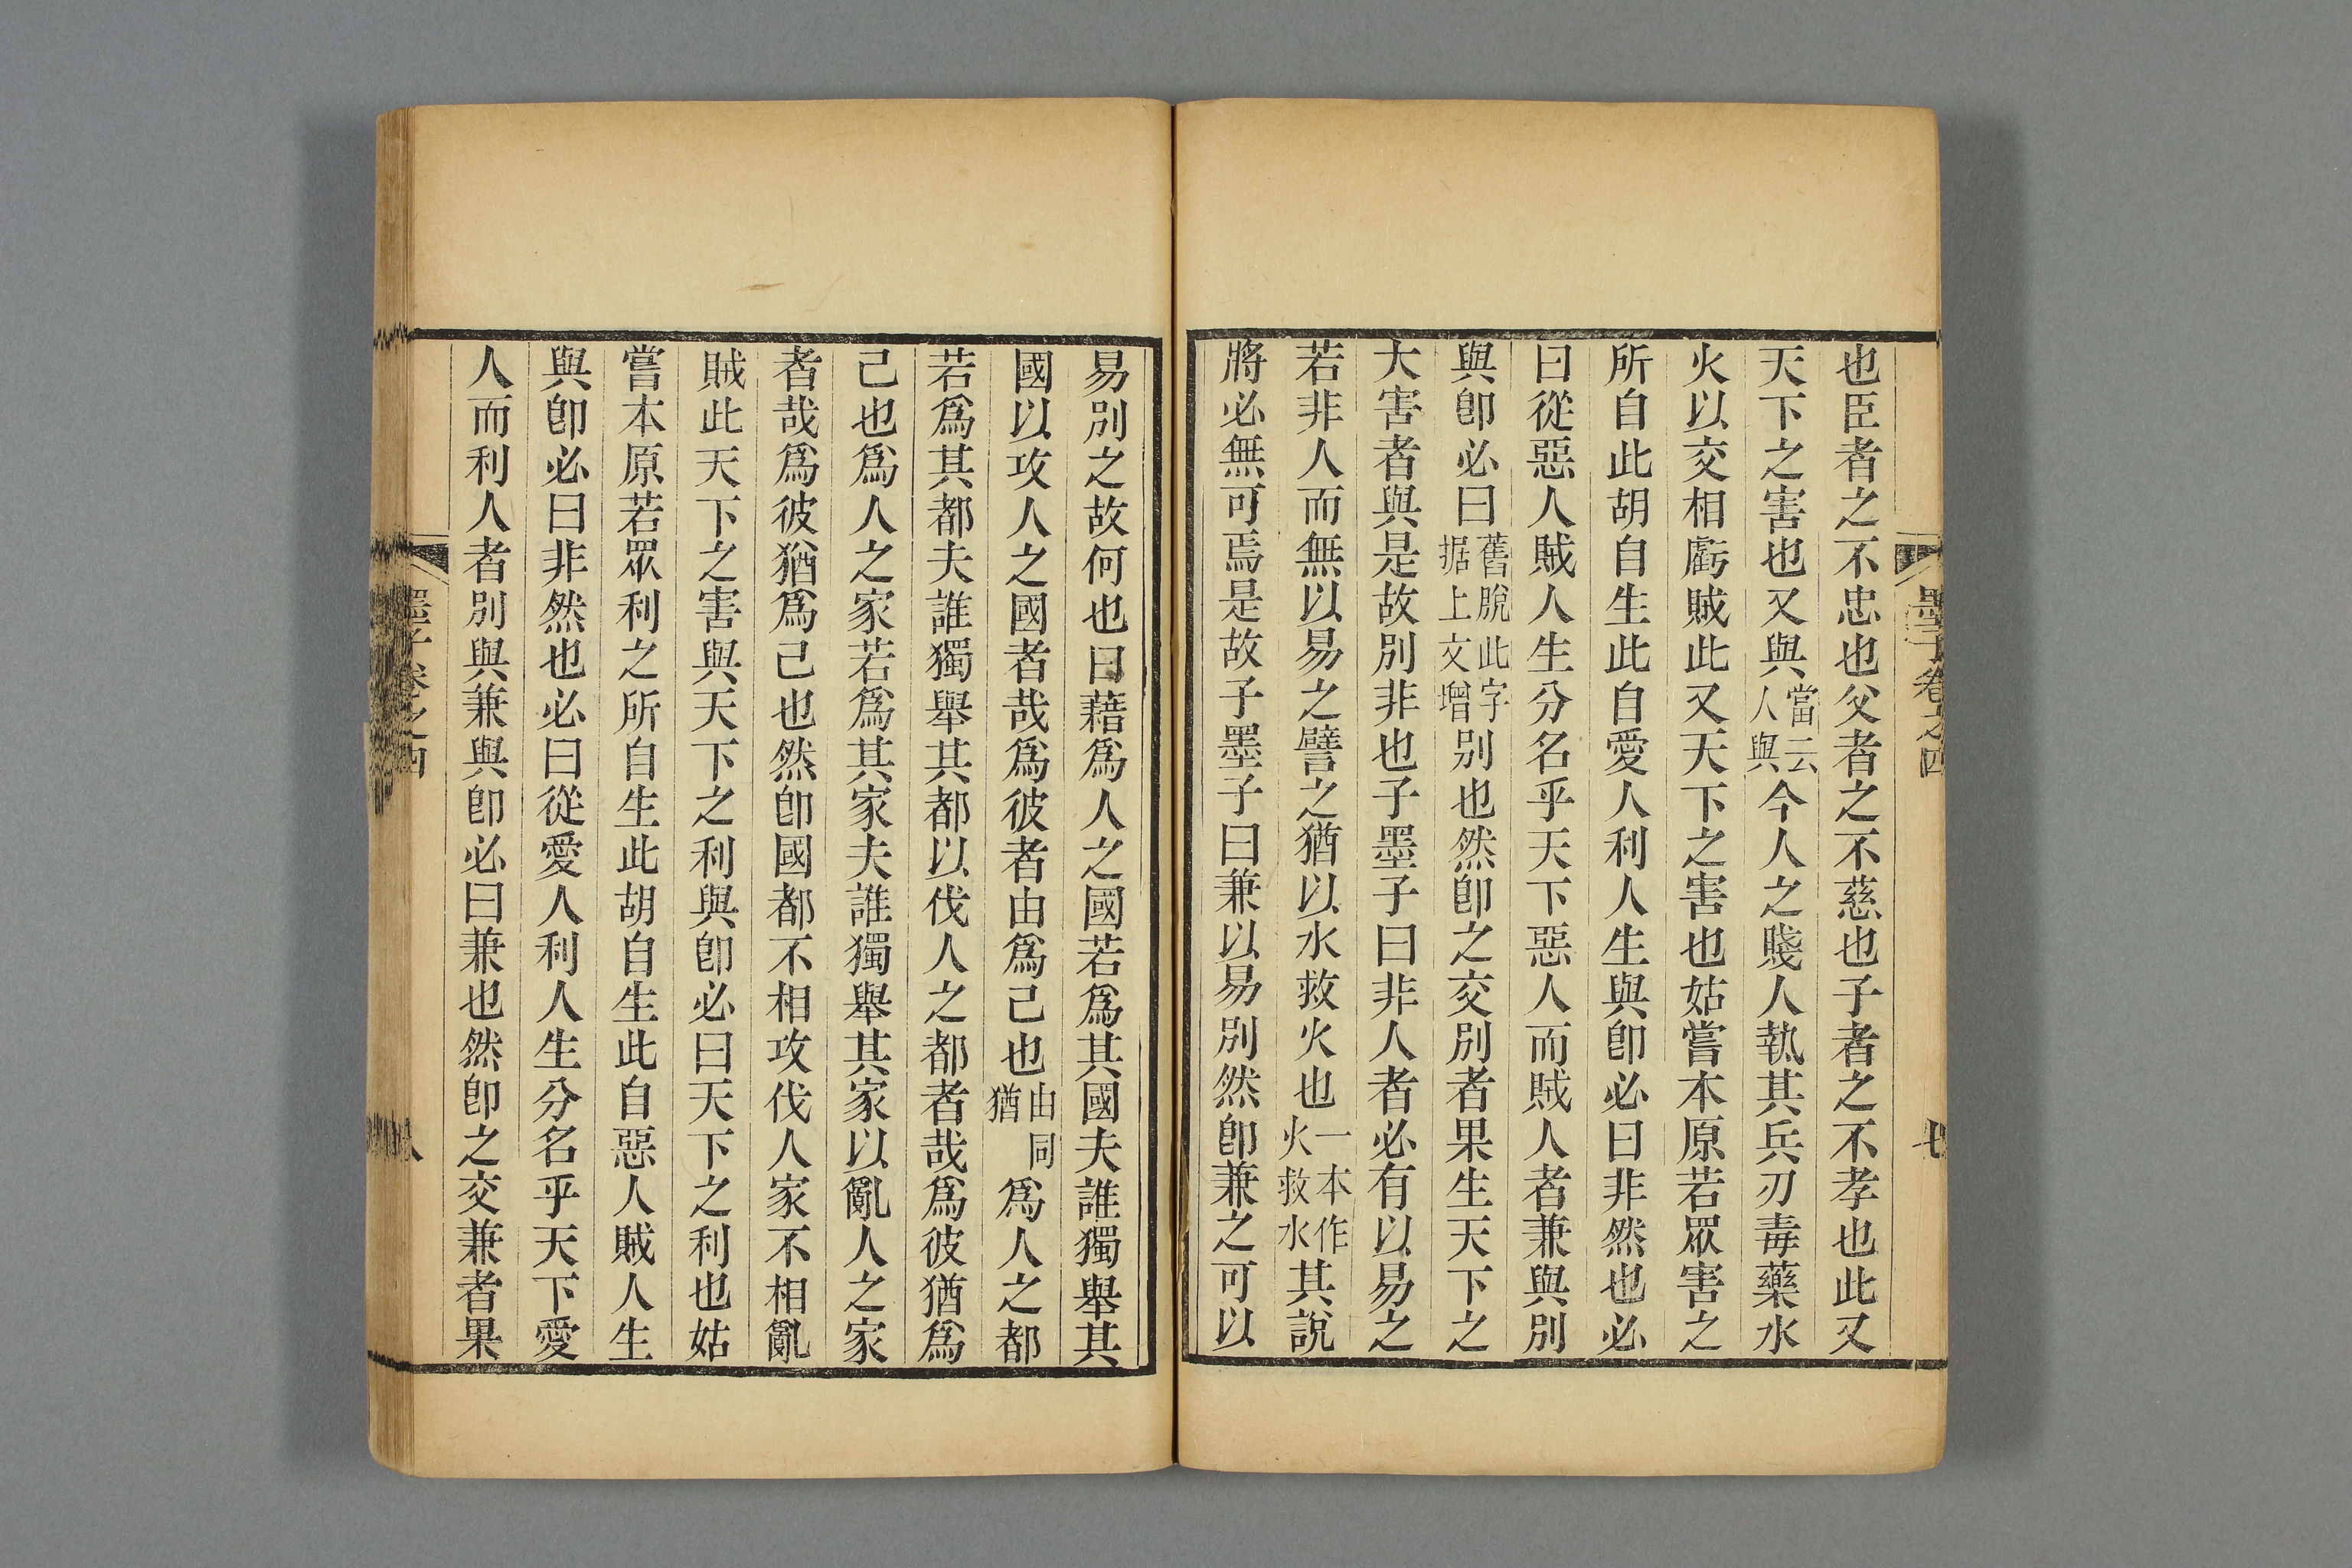 墨子卷之四
七
也臣者之不忠也父者之不慈也子者之不孝也此又
天下之害也又與當云人與今人之賤人執其兵刃毒藥水
火以交相虧賊此又天下之害也姑嘗本原若眾害之
所自此胡自生此自愛人利人生與卽必曰非然也必
曰從惡人賊人生分名乎天下惡人而賊人者兼與別
與卽必曰舊脫此字据上文增别也然卽之交別者果生天下之
大害者與是故別非也子墨子曰非人者必有以易之
若非人而無以易之譬之猶以水救火也一本作火救水其說
將必無可焉是故子墨子曰兼以易別然卽兼之可以
易別之故何也曰藉爲人之國若爲其國夫誰獨舉其
國以攻人之國者哉爲彼者由爲己也由同猶爲人之都
若爲其都夫誰獨舉其都以伐人之都者哉爲彼猶爲
己也爲人之家若爲其家夫誰獨舉其家以亂人之家
者哉爲彼猶爲己也然卽國都不相攻伐人家不相亂
賊此天下之害與天下之利與卽必曰天下之利也姑
嘗本原若眾利之所自生此胡自生此自惡人賊人生
與卽必曰非然也必曰從愛人利人生分名乎天下愛
人而利人者別與兼與卽必曰兼也然卽之交兼者果
墨子卷之四
八